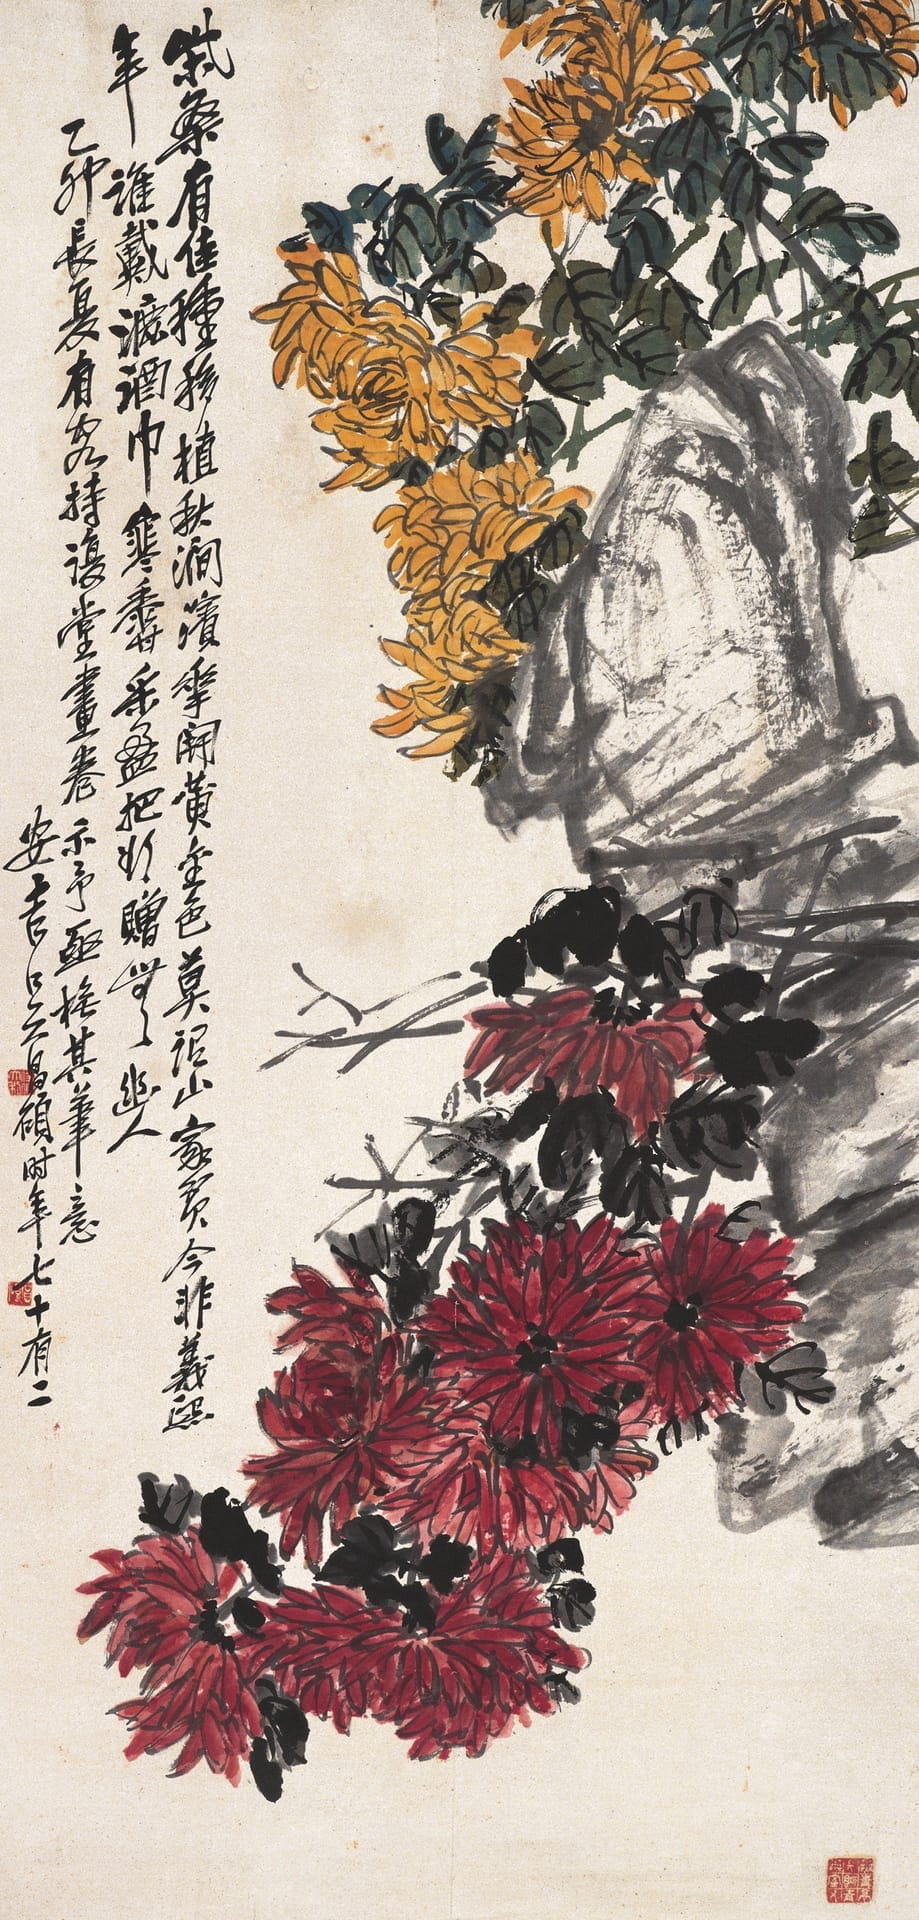 柴桑有佳種移植秋澗濱華開黃金色莫山家貧今非義熙
年誰戴漉酒巾寒香采盈把欲贈無幽人
乙卯長夏有客持復堂畫卷示予亟橅其筆意
安吉吳昌碩時年七十有二